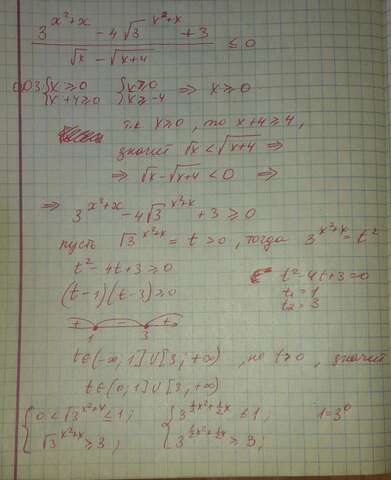 (3^{x²+x} - 4√3^{x²+x} + 3) / (√x - √(x+4)) ≤ 0
ОДЗ {x ≥ 0 {x ≥ 0 ⇒ x ≥ 0
{x+4 ≥ 0 {x ≥ -4
т.к x ≥ 0, то x+4 ≥ 4,
значит √x < √(x+4) ⇒
⇒ √x - √(x+4) < 0 ⇒
⇒ 3^{x²+x} - 4√3^{x²+x} + 3 ≥ 0
пусть √3^{x²+x} = t > 0, тогда 3^{x²+x} = t²
t² - 4t + 3 ≥ 0 t² - 4t + 3 = 0
(t-1)(t-3) ≥ 0 t₁ = 1
t₂ = 3
+ - +
1 3
t ∈ (-∞, 1] ∪ [3, +∞), но t > 0, значит
t ∈ (0, 1] ∪ [3, +∞)
{0 < √3^{x²+x} ≤ 1; {3^{½x²+½x} ≤ 1, 1 = 3⁰
{√3^{x²+x} ≥ 3; {3^{½x²+½x} ≥ 3;